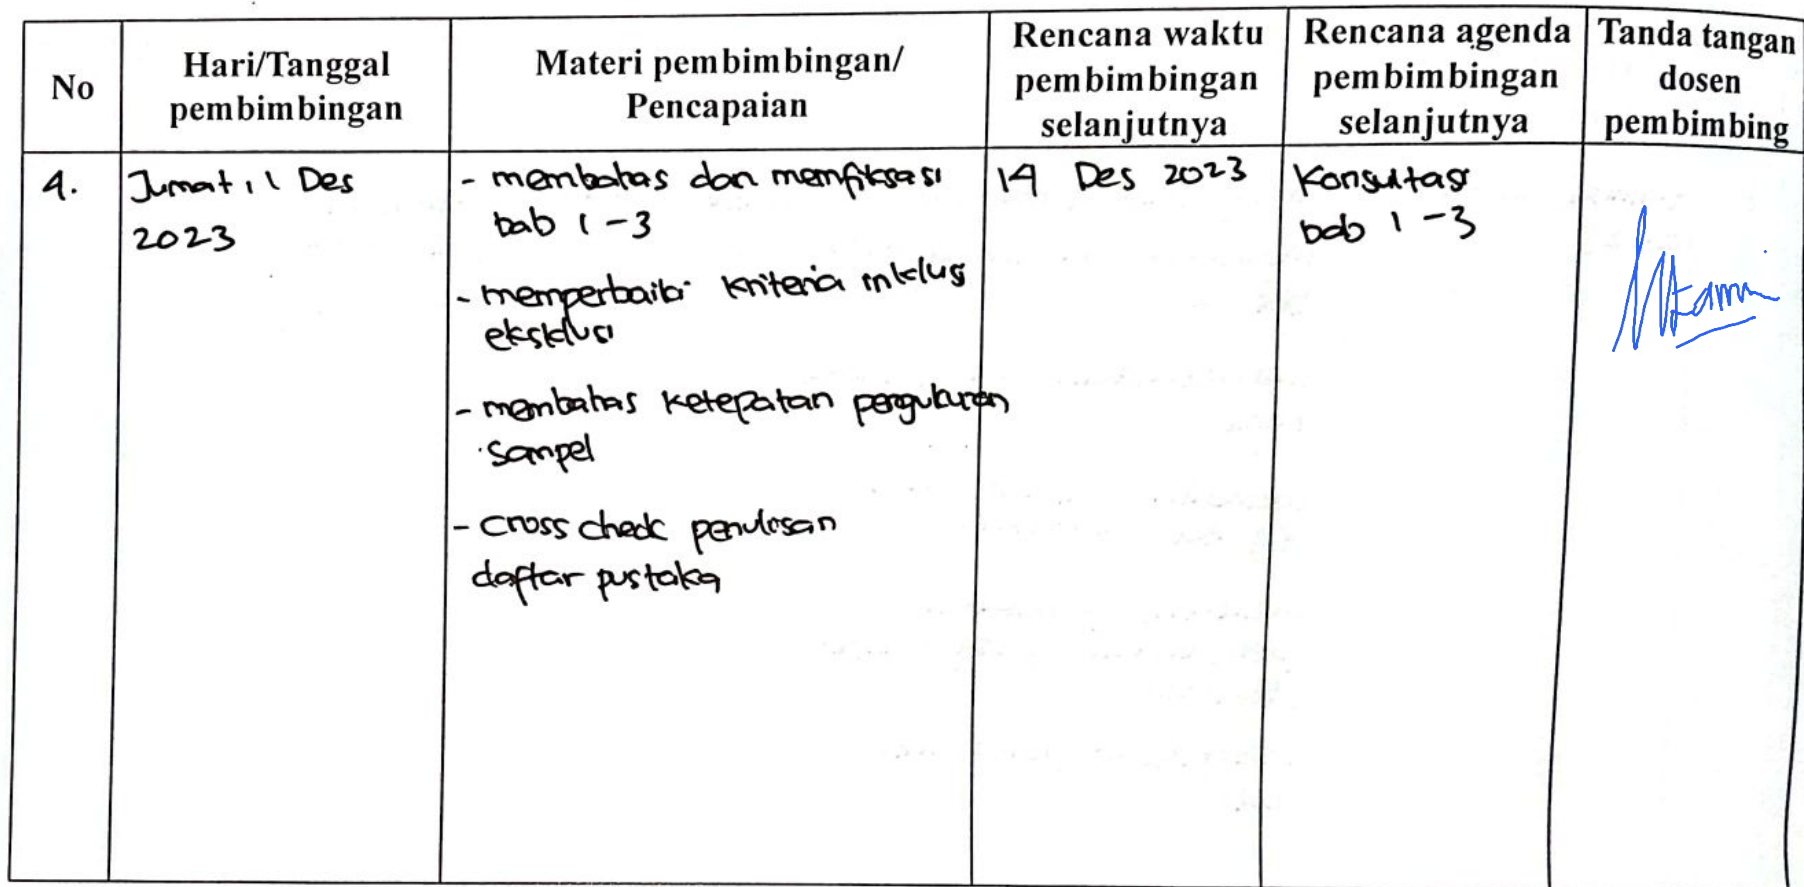 No
Hari/Tanggal
pembimbingan
Materi pembimbingan/
Pencapaian
Rencana waktu
pembimbingan
selanjutnya
Rencana agenda
pembimbingan
selanjutnya
Tanda tangan
dosen
pembimbing
4.
Jumat, 1 Des
2023
- membahas dan memfiksasi
bab 1-3
- memperbaiki kriteria inklusi
eksklusi
- membahas ketepatan pengukuran
sampel
- cross check penulisan
daftar pustaka
14 Des 2023
Konsultasi
bab 1-3